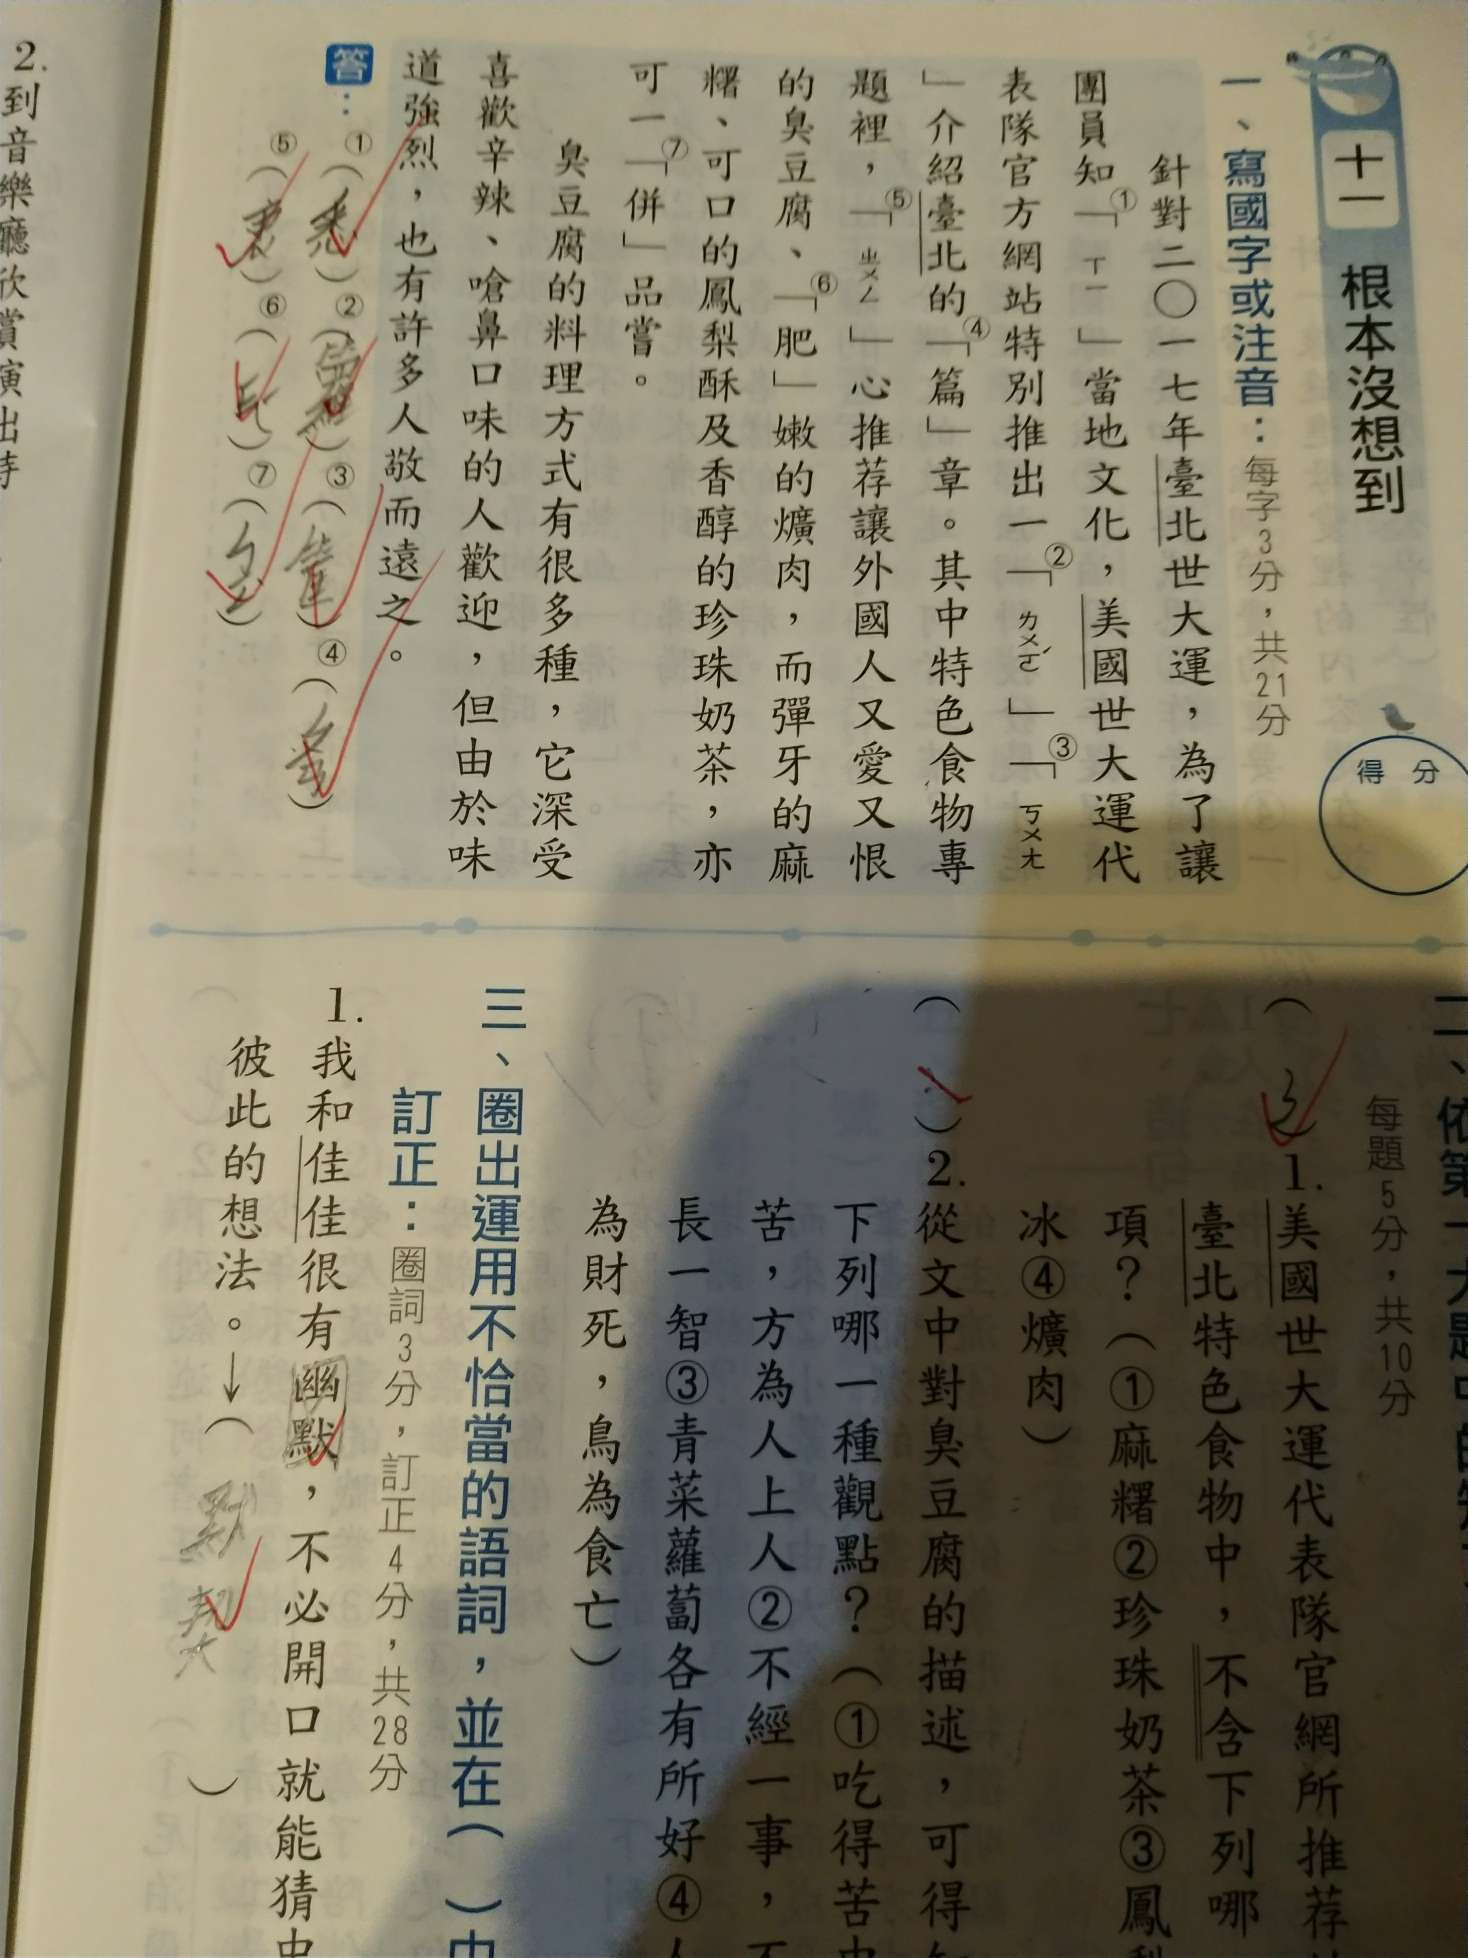 十一 根本沒想到
得分
一、寫國字或注音：每字3分，共21分
針對二〇一七年臺北世大運，為了讓
團員知①「ㄒㄧ」當地文化，美國世大運代
表隊官方網站特別推出一②「ㄌㄨㄛˊ」③「ㄎㄨㄤ
」介紹臺北的④「篇」章。其中特色食物專
題裡，⑤「ㄓㄨㄥ」心推荐讓外國人又愛又恨
的臭豆腐、⑥「肥」嫩的爌肉，而彈牙的麻
糬、可口的鳳梨酥及香醇的珍珠奶茶，亦
可一⑦「併」品嘗。
臭豆腐的料理方式有很多種，它深受
喜歡辛辣、嗆鼻口味的人歡迎，但由於味
道強烈，也有許多人敬而遠之。
答：
①(悉)②(籮)③(筐)④(ㄆㄧㄢ)
⑤(衷)⑥(ㄈㄟˊ)⑦(ㄅㄧㄥˋ)
二、依第一大題中的
每題5分，共10分
( 2 )1.美國世大運代表隊官網所推荐
臺北特色食物中，不含下列哪
項？(①麻糬②珍珠奶茶③鳳
冰④爌肉)
( )2.從文中對臭豆腐的描述，可得
下列哪一種觀點？(①吃得苦中
苦，方為人上人②不經一事，不
長一智③青菜蘿蔔各有所好④人
為財死，鳥為食亡)
三、圈出運用不恰當的語詞，並在( )中
訂正：圈詞3分，訂正4分，共28分
1.我和佳佳很有幽默，不必開口就能猜中
彼此的想法。→(默契)
2.到音樂廳欣賞演出時